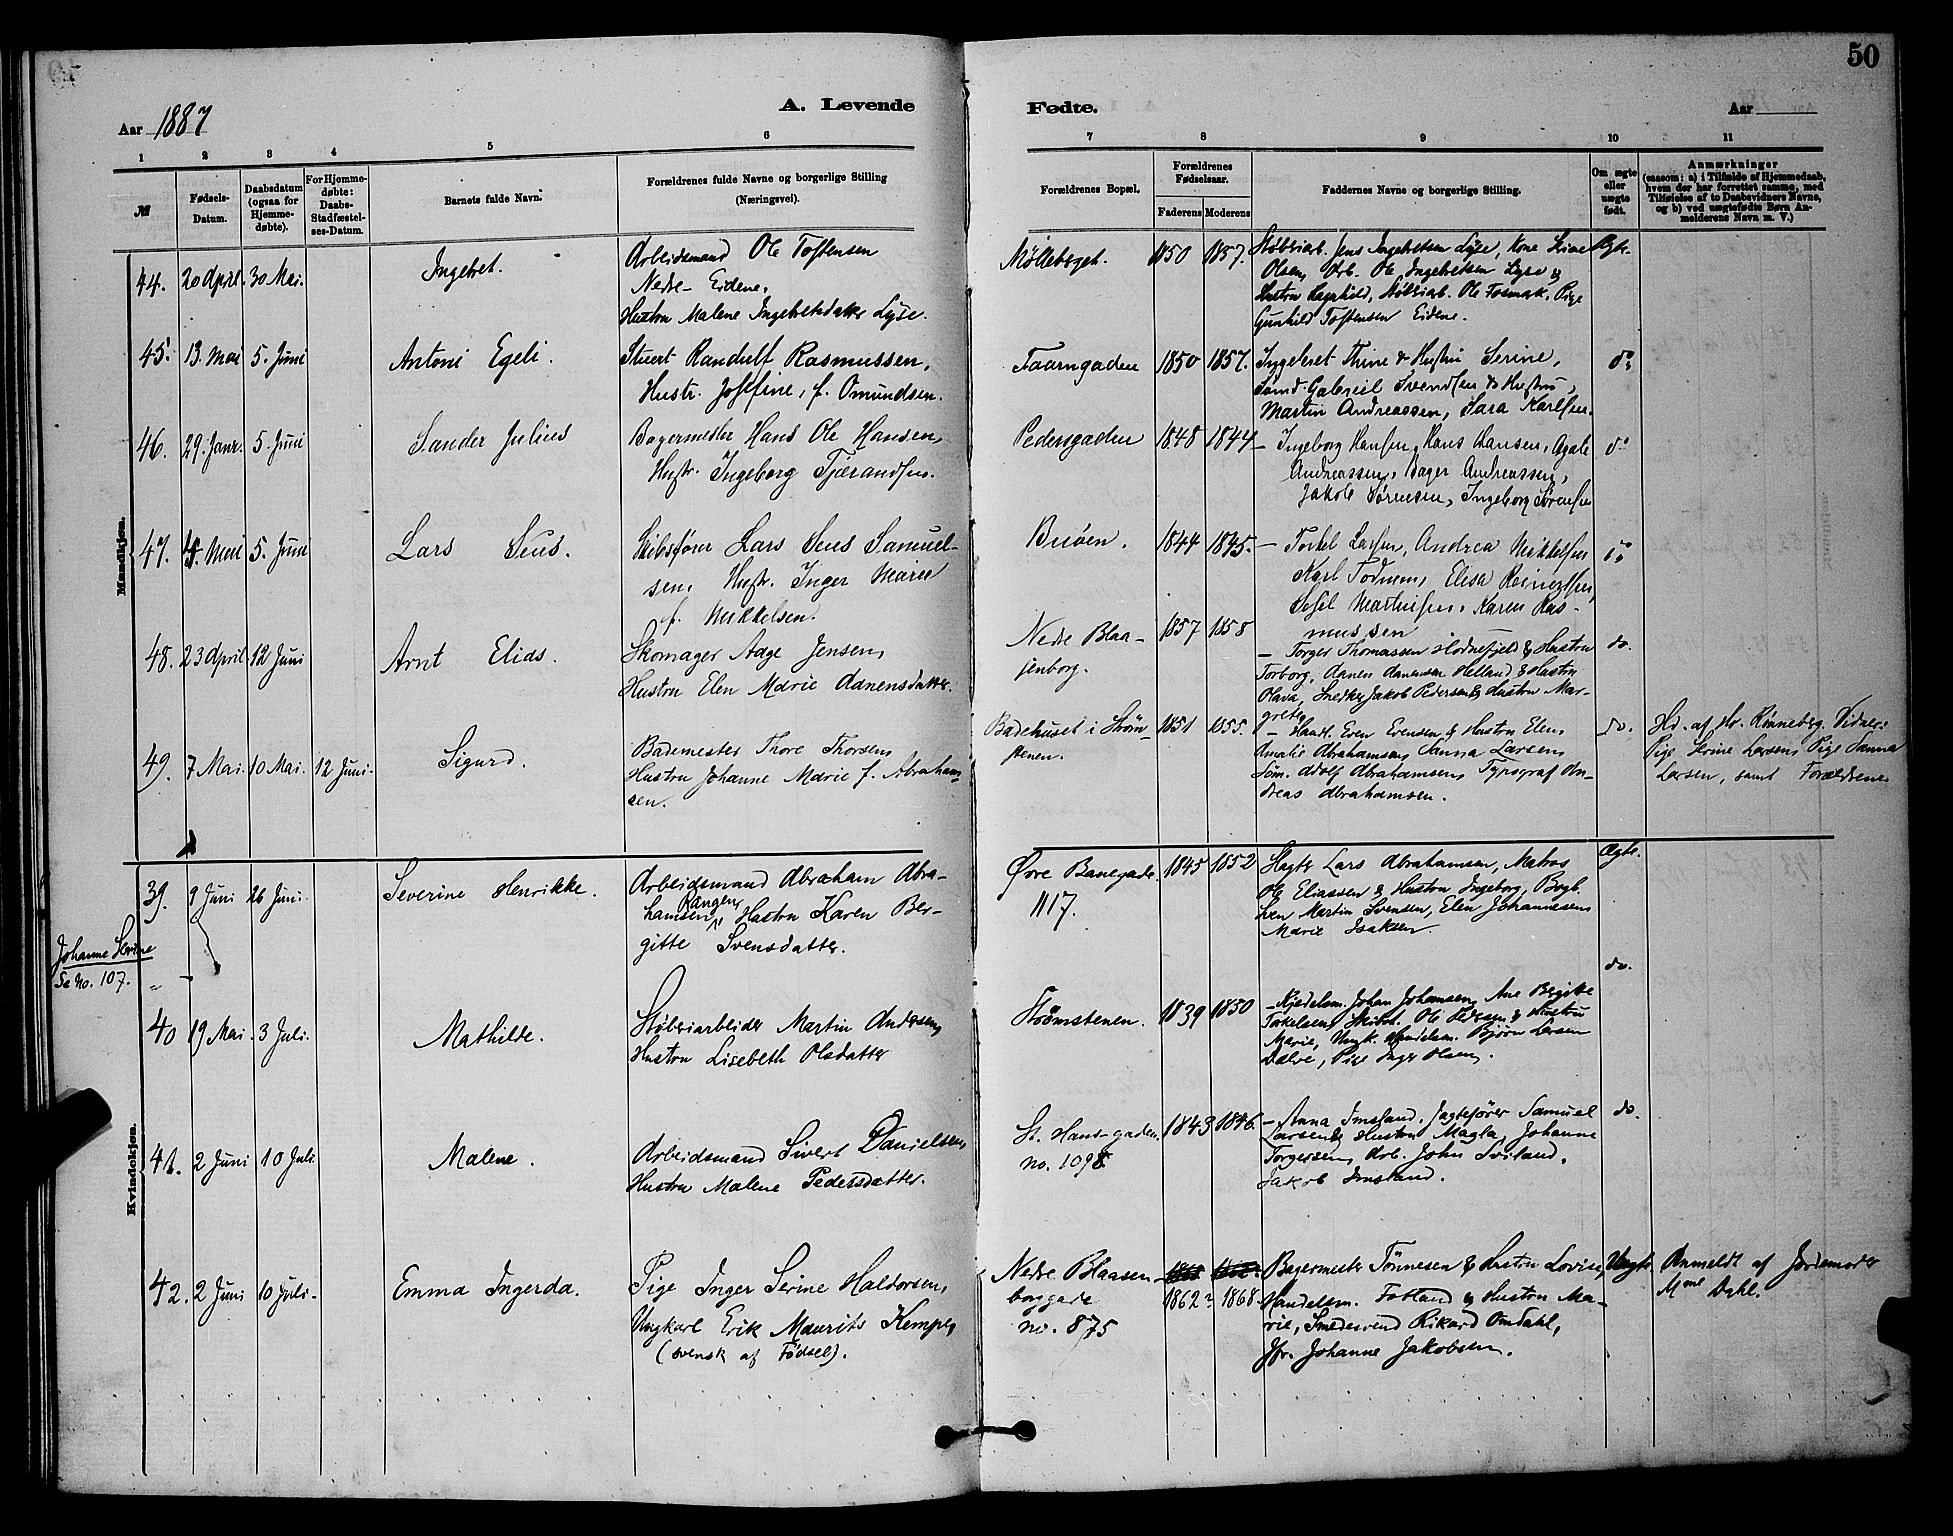 50
Aar 1887
A. Levende
Fødte.
Aar
1 2 3 4 5 6
7 8 9 10 11
№
Fødsels-Datum.
Daabsdatum (ogsaa for Hjemmedøbte).
For Hjemmedøbte: Daabs-Stadfæstelses-Datum.
Barnets fulde Navn.
Forældrenes fulde Navne og borgerlige Stilling (Næringsvei).
Forældrenes Bopæl.
Forældrenes Fødselsaar.
Faderens Moderens
Faddernes Navne og borgerlige Stilling.
Om ægte eller uægte født.
Anmærkninger
(saasom: a) i Tilfælde af Hjemmedaab, hvem der har forrettet samme, med Tilføielse af to Daabsvidners Navne, og b) ved uægtefødte Børn Anmelderens Navn m. V.)
Mandkjøn.
44. 20 April. 30 Mai. Ingebret.
Arbeidsmand Ole Tostensen
Nedre Eidene,
Hustru Malene Ingebretsdatter Lyse.
Møllebeget. 1850 1857.
Støberiarb. Jens Ingebretsen Lyse, Kone Serine
Olsen, Arb. Ole Ingebretsen Lyse &
Hustru Ragnhild, Støberiarb. Ole Fosmark, Pige
Gunhild Tostensen Eidene.
Ægte.
45. 13. Mai 5. Juni Antoni Egeli.
Stuert Randulf Rasmussen,
Hustr. Josefine, f. Omundsen.
Taarngaden 1850 1857.
Ingebret Thime & Hustru Serine,
Sømd. Gabriel Svendsen & Hustru,
Martin Andreassen, Sara Karlsen.
do
46. 29. Janr. 5. Juni Sander Julius
Bagermester Hans Ole Hansen,
Hustr. Ingeborg Tjerandsen.
Pedersgaden 1848 1844
– Ingeborg Hansen, Hans Hansen, Agate
Andreassen, Bager Andreassen,
Jakob Sørensen, Ingeborg Sørensen
do
47. 4. Mai 5. Juni Lars Seus.
Skibsfører Lars Seus Samuel-
sen, Hustr. Inger Marie
f. Mikkelsen.
Buøen. 1844 1845.
– Torkel Larsen, Andrea Mikkelsen
Karl Todnem, Elisa Reinertsen,
Sofie Martinsen, Karen Ras-
mussen
do
48. 23 April 12 Juni Arnt Elias.
Skomager Aage Jensen,
Hustru Elen Marie Aanensdatter.
Nedre Blaa-
senborg.
1857 1858
– Torger Thomassen Hodnefjeld & Hustru
Torborg, Aanen Aanensen Helland & Hustru
Olava, Snedker Jakob Pedersen & Hustru Mar-
grete
do.
49. 7 Mai. 10 Mai. 12 Juni. Sigurd.
Bademester Thore Thorsen,
Hustru Johanne Marie f. Abraham-
sen.
Badehuset i Strøm-
stenen.
1851 1855.
– Handl. Even Evensen & Hustru Elen,
Amalie Abrahamsen, Sanna Larsen,
Søm. Adolf Abrahamsen, Typograf An-
dreas Abrahamsen.
do.
Hd. af Hr. Rinneberg. Vidner:
Pige Serine Larsen, Pige Sanna
Larsen, samt Forældrene
Kvindekjøn.
39. 9 Juni 26 Juni. Severine Henrikke.
Arbeidsmand Abraham Abra-
hamsen Vangen, Hustru Karen Ber-
gitte Svensdatter.
Øvre Banegade.
1117.
1845 1852
Slagter Lars Abrahamsen, Matros
Ole Eliassen & Hustru Ingeborg, Bogb.
Sven Martin Svensen, Elen Johannesen
Marie Isaksen.
Ægte.
Johanne Serine
Se No. 107. " –
do.
40 19 Mai. 3 Juli. Mathilde.
Støberiarbeider Martin Andersen,
Hustru Lisebeth Olsdatter
Strømstenen. 1839 1850
– Kjedelsm. Johan Johansen, Ane Bergitte
Takelsen, Skibst. Ole Pedersen & Hustru
Marie, Ungk. Handelsm. Bjørn Larsen
Dalve, Pige Inger Olsen.
41. 2 Juni 10 Juli Malene.
Arbeidsmand Sivert Danielsen,
Hustru Malene Pedersdatter.
St. Hans-gaden
no. 1098
1843 1846.
– Anna Imsland, Jagtefører Samuel
Larsen & Hustru Magla, Johanne
Torgersen, Arb. John Sviland,
Jakob Imsland.
do.
42. 2 Juni 10 Juli. Emma Ingerda.
Pige Inger Serine Halvorsen,
Ungkarl Erik Maurits Kempe,
(svensk af Fødsel).
Nedre Blaasen-
borggade
no. 875
1862? 1868.
Bagermester Tønnesen & Hustru Lovise,
Handelsm. Fotland & Hustru Ma-
rie, Smedesvend Rikard Omdahl,
Jfr. Johanne Jakobsen.
Uægte
Anmeldt af Jordemoder
Mme Dahl.